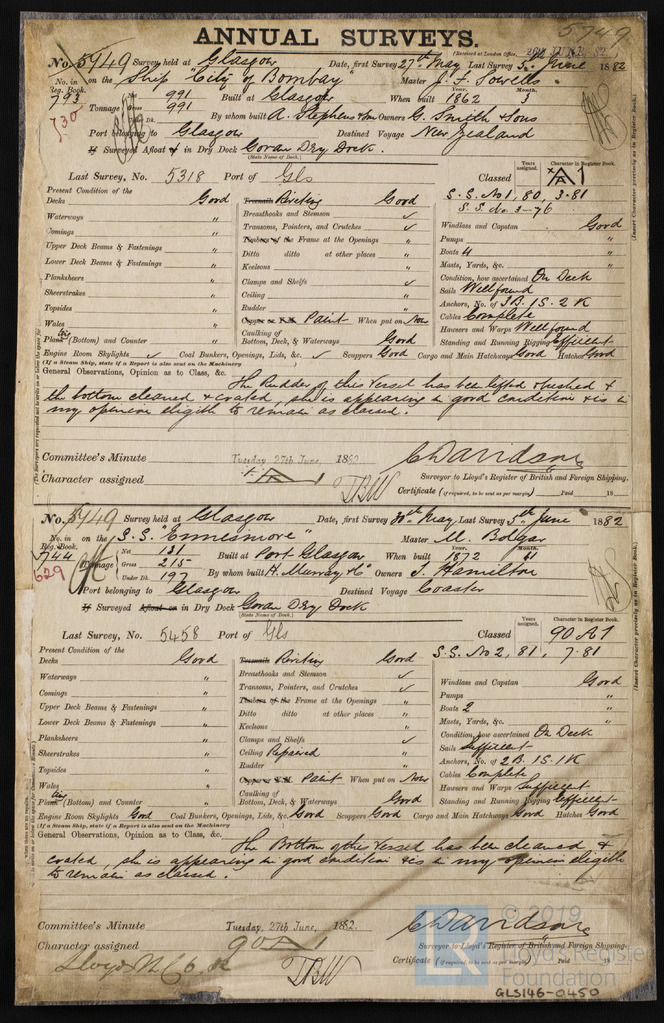 5749
ANNUAL SURVEYS.
(Received at London Office,
No. 5749 Survey held at Glasgow Date, first Survey 27th May Last Survey 5th June 1882
No. in Reg. Book. on the Ship "City of Bombay" Master J. F.
793 Tonnage Net 991 Gross 991 Under Dk. Built at Glasgow When built Year. 1862 Month. 3
730
By whom built A. Stephen & Son Owners G. Smith & Sons
Port belonging to Glasgow Destined Voyage New Zealand
If Surveyed Afloat or in Dry Dock Govan Dry Dock.
(State Name of Dock.)
Last Survey, No. 5318 Port of Gls Classed Years assigned. Character in Register Book. A 1
Present Condition of the S.S. No 1, 80, 3.81
S.S. No. 3-76
Decks Good Treenails Riveting Good
Waterways " Breasthooks and Stemson ✓ Windlass and Capstan Good
Comings " Transoms, Pointers, and Crutches ✓ Pumps "
Upper Deck Beams & Fastenings " Timbers of the Frame at the Openings " Boats 4 "
Lower Deck Beams & Fastenings " Ditto ditto at other places " Masts, Yards, &c. "
Planksheers " Keelsons " Condition, how ascertained On Deck
Sheerstrakes " Clamps and Shelfs ✓ Sails Well found
Topsides " Ceiling " Anchors, No. of 3B. 1S. 2K
Wales " Rudder " Cables Complete
Copper or Y.M. Paint When put on Now Hawsers and Warps Well found
Plank (Bottom) and Counter " Caulking of Bottom, Deck, & Waterways Good Standing and Running Rigging Efficient
Engine Room Skylights ✓ Coal Bunkers, Openings, Lids, &c. ✓ Scuppers Good Cargo and Main Hatchways Good Hatches Good
(If a Steam Ship, state if a Report is also sent on the Machinery
General Observations, Opinion as to Class, &c.
The Rudder of this Vessel has been lifted & bushed &
the bottom cleaned & coated, she is appearing in good condition & is in
my opinion eligible to remain as classed.
Committee's Minute Tuesday 27th June, 1882
Character assigned A 1
C Davidson
Surveyor to Lloyd's Register of British and Foreign Shipping.
Certificate (if required, to be sent as per margin) Paid 18
No. 5749 Survey held at Glasgow Date, first Survey 30th May Last Survey 5th June 1882
No. in Reg. Book. on the S.S. "Ennismore" Master M. Bolgar
744 Tonnage Net 131 Gross 215 Under Dk. 197 Built at Port-Glasgow When built Year. 1872 Month.
629
By whom built H. Murray & Co Owners J. Hamilton
Port belonging to Glasgow Destined Voyage Coaster
If Surveyed Afloat or in Dry Dock Govan Dry Dock
(State Name of Dock.)
Last Survey, No. 5458 Port of Gls Classed Years assigned. Character in Register Book. 90 A1
Present Condition of the S.S. No 2, 81, 7.81
Decks Good Treenails Riveting Good
Waterways " Breasthooks and Stemson ✓ Windlass and Capstan Good
Comings " Transoms, Pointers, and Crutches ✓ Pumps "
Upper Deck Beams & Fastenings " Timbers of the Frame at the Openings " Boats 2 "
Lower Deck Beams & Fastenings " Ditto ditto at other places " Masts, Yards, &c. "
Planksheers " Keelsons " Condition, how ascertained On Deck
Sheerstrakes " Clamps and Shelfs ✓ Sails Sufficient
Topsides " Ceiling Repaired Anchors, No. of 2B. 1S. 1K
Wales " Rudder " Cables Complete
Copper or Y.M. Paint When put on Now Hawsers and Warps Sufficient
Plank (Bottom) and Counter " Caulking of Bottom, Deck, & Waterways Good Standing and Running Rigging Efficient
Engine Room Skylights Good Coal Bunkers, Openings, Lids, &c. Good Scuppers Good Cargo and Main Hatchways Good Hatches Good
(If a Steam Ship, state if a Report is also sent on the Machinery
General Observations, Opinion as to Class, &c.
The Bottom of this Vessel has been cleaned &
coated, she is appearing in good condition & is in my opinion eligible
to remain as classed.
Committee's Minute Tuesday, 27th June, 1882.
Character assigned 90 A 1
Lloyds M.C.
C Davidson
Surveyor to Lloyd's Register of British and Foreign Shipping.
Certificate (if required, to be sent as per margin) Paid 18
© 2019
Lloyd's Register
Foundation
GLS146-0450
(Insert Character precisely as in Register Book.)
(Insert Character precisely as in Register Book.)